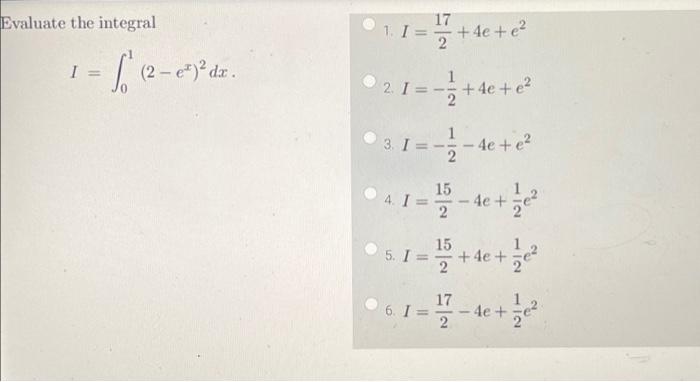 Evaluate the integral
I = ∫₀¹ (2 − eˣ)² dx.
1. I = 17/2 + 4e + e²
2. I = −1/2 + 4e + e²
3. I = −1/2 − 4e + e²
4. I = 15/2 − 4e + 1/2 e²
5. I = 15/2 + 4e + 1/2 e²
6. I = 17/2 − 4e + 1/2 e²